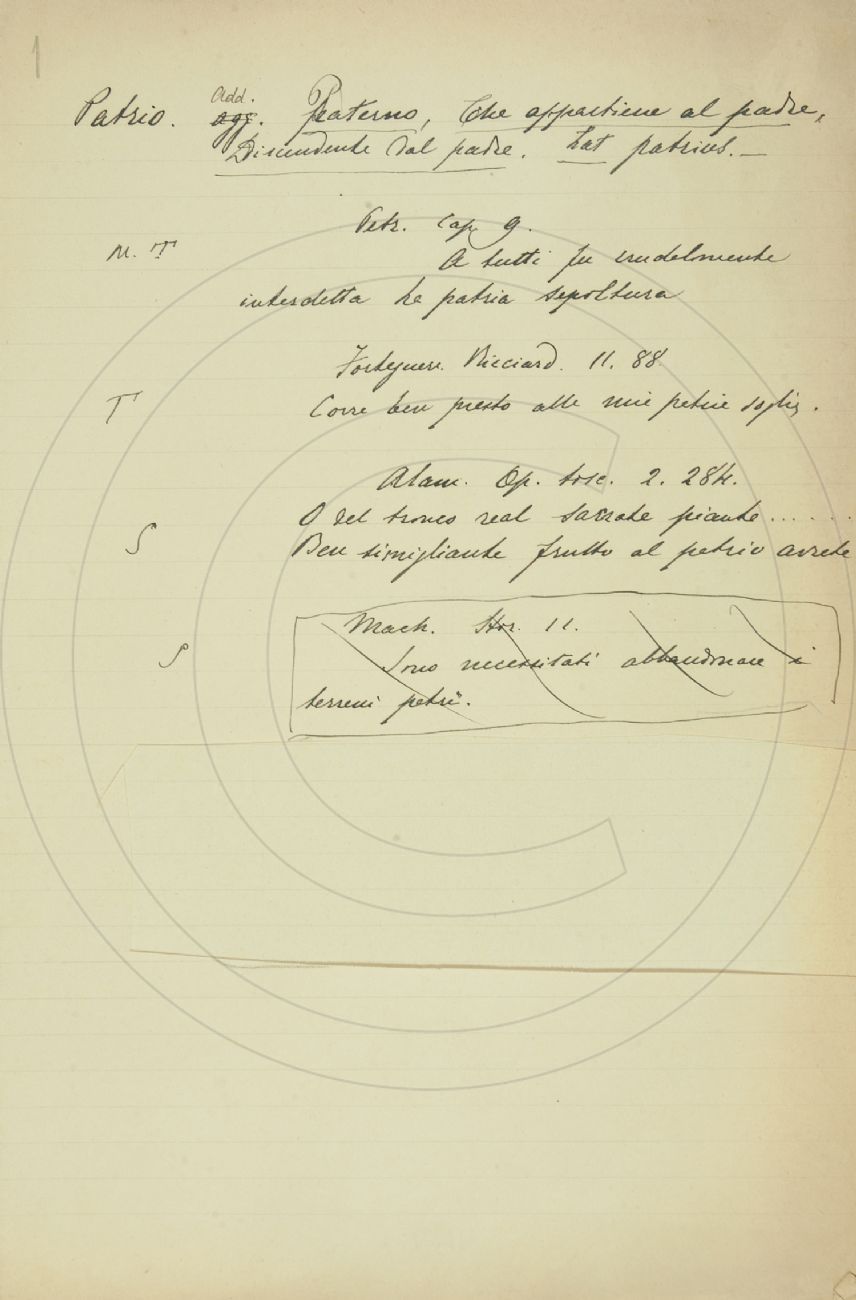 1
Add.
Patrio. agg. Paterno, Che appartiene al padre,
Discendente dal padre. Lat patrius. —
Petr. Cap 9.
M. T A tutti fu crudelmente
interdetta la patria sepoltura
Forteguerr. Ricciard. 11. 88
T Corre ben presto alle mie patrie soglie.
Alam. Op. tosc. 2. 284.
O del tronco real sacrate piante......
S Ben simigliante frutto al patrio avrete
Mach. Stor. 11.
S Sono necessitati abbandonare i
terreni patrii.